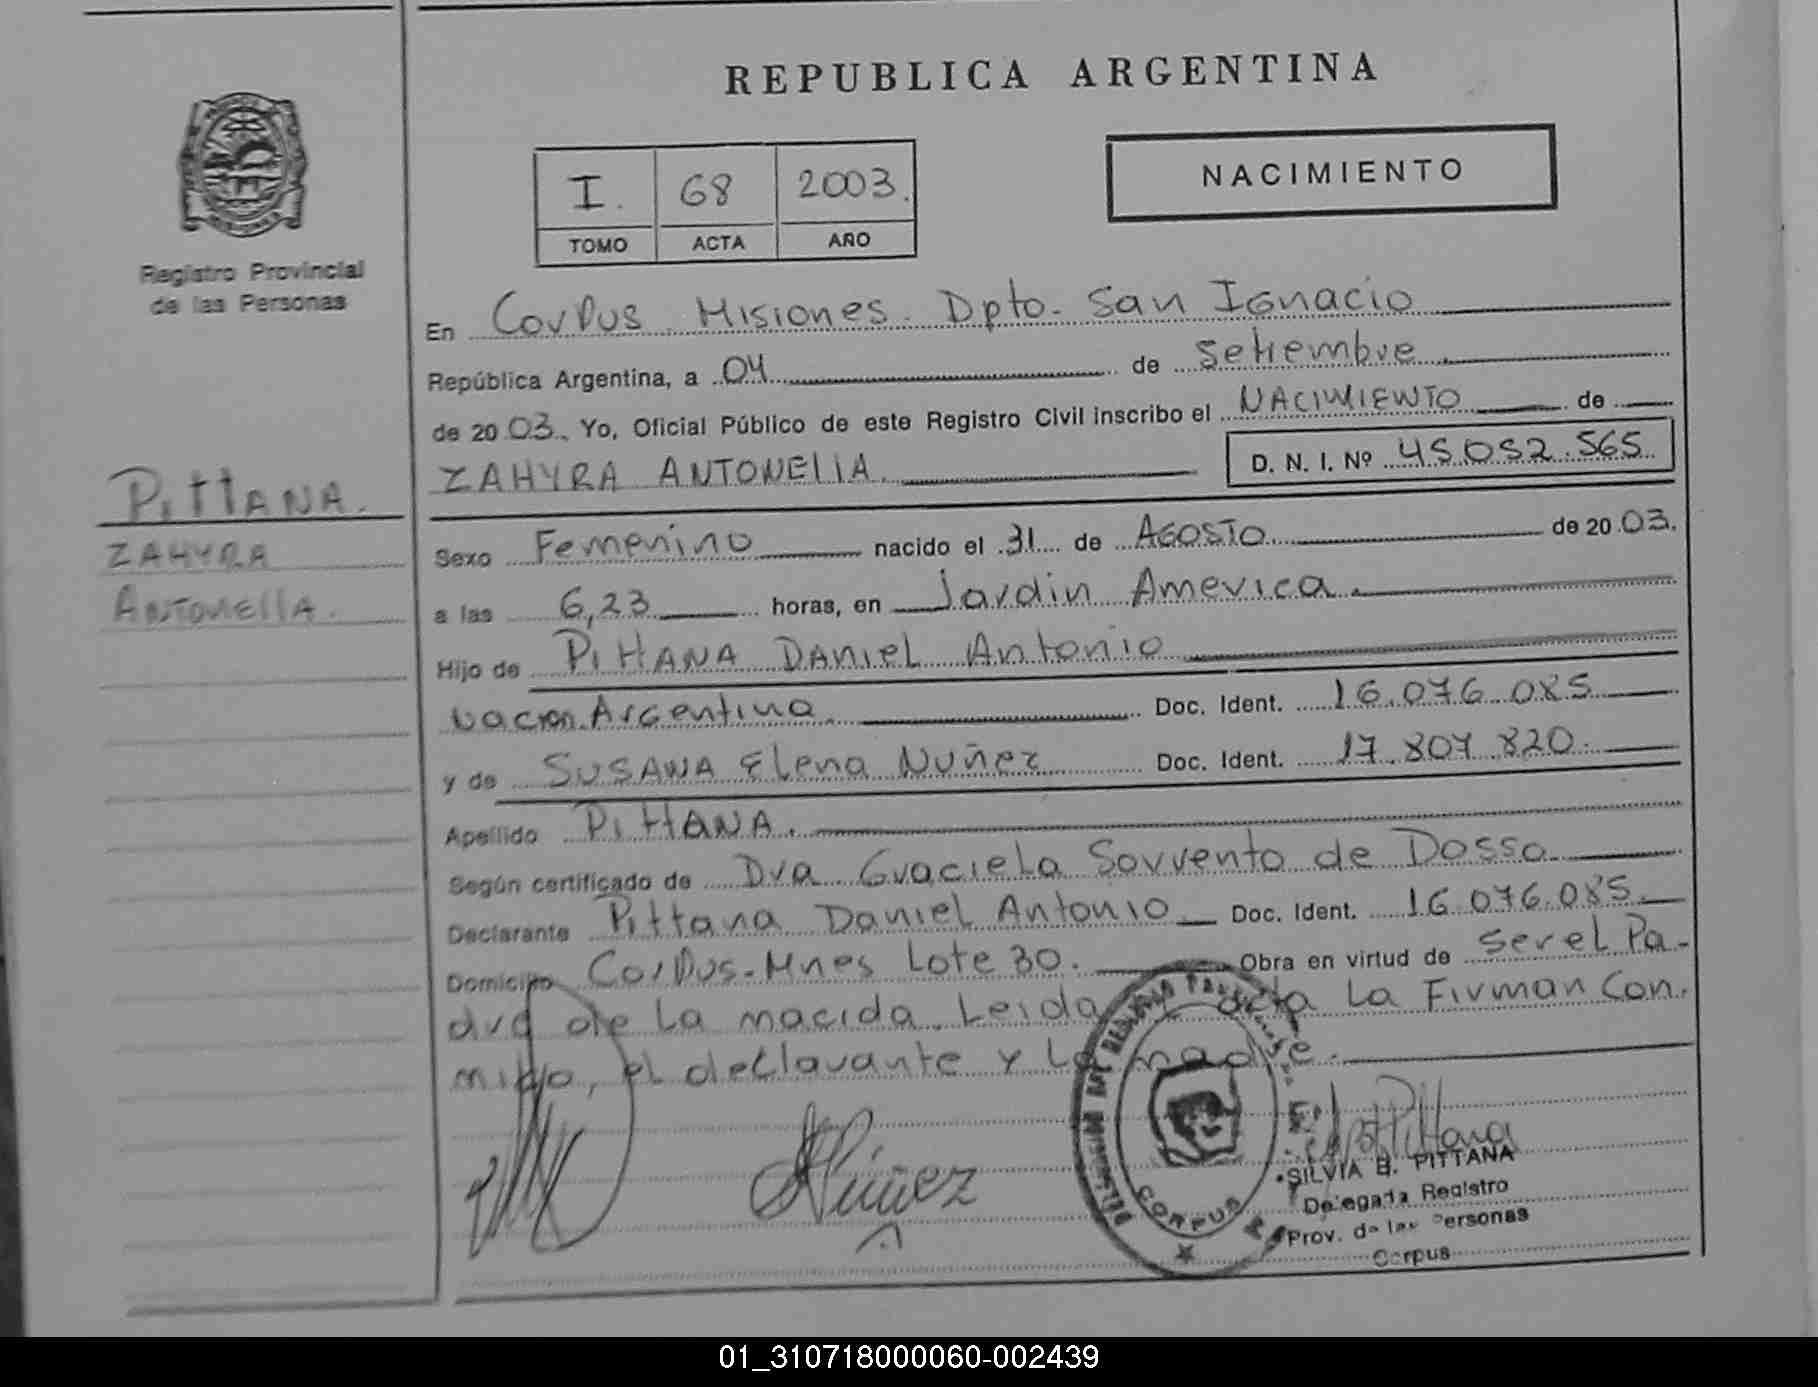 REPUBLICA ARGENTINA
Registro Provincial
de las Personas
I. 68 2003.
TOMO ACTA AÑO
NACIMIENTO
En Corpus Misiones. Dpto. San Ignacio
República Argentina, a 04 de Setiembre
de 2003. Yo, Oficial Público de este Registro Civil inscribo el NACIMIENTO de
ZAHYRA ANTONELLA. D. N. I. Nº 45.052.565
PittANA.
ZAHYRA
ANTONELLA.
Sexo Femenino nacido el 31 de AGOSTO de 2003.
a las 6,23 horas, en Jardin America.
Hijo de PittANA DANIEL Antonio
nacion. Argentina. Doc. Ident. 16.076.085
y de SUSANA Elena Nuñez Doc. Ident. 17.807.820.
Apellido PittANA.
Según certificado de Dra Graciela Sorvento de Dosso
Declarante Pittana Daniel Antonio Doc. Ident. 16.076.085.
Domicilio Corpus-Mnes Lote 30. Obra en virtud de ser el Pa-
dre de la nacida. Leida acta La Firman Con.
migo, el declarante y La madre.
Núñez
Pittana
SILVIA B. PITTANA
Delegada Registro
Prov. de las Personas
Corpus
CORPUS
01_310718000060-002439